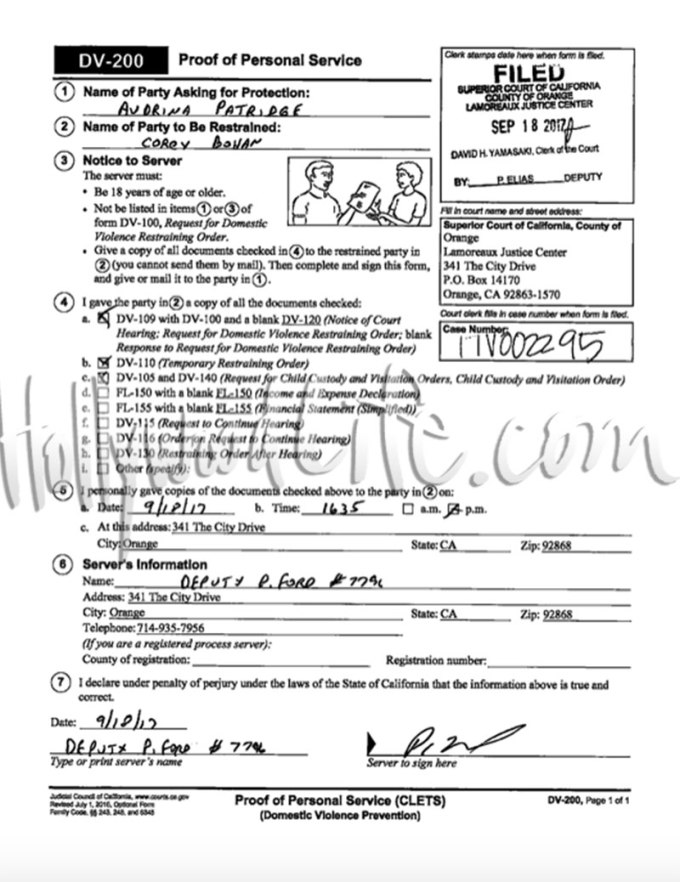 DV-200 Proof of Personal Service
Clerk stamps date here when form is filed.
FILED
SUPERIOR COURT OF CALIFORNIA
COUNTY OF ORANGE
LAMOREAUX JUSTICE CENTER
SEP 18 2017
DAVID H. YAMASAKI, Clerk of the Court
BY: P. ELIAS DEPUTY
1 Name of Party Asking for Protection:
AUDRINA PATRIDGE
2 Name of Party to Be Restrained:
COREY BOHAN
3 Notice to Server
The server must:
• Be 18 years of age or older.
• Not be listed in items 1 or 3 of
form DV-100, Request for Domestic
Violence Restraining Order.
• Give a copy of all documents checked in 4 to the restrained party in
2 (you cannot send them by mail). Then complete and sign this form,
and give or mail it to the party in 1.
Fill in court name and street address:
Superior Court of California, County of
Orange
Lamoreaux Justice Center
341 The City Drive
P.O. Box 14170
Orange, CA 92863-1570
Court clerk fills in case number when form is filed.
Case Number:
17V002295
4 I gave the party in 2 a copy of all the documents checked:
a. DV-109 with DV-100 and a blank DV-120 (Notice of Court
Hearing; Request for Domestic Violence Restraining Order; blank
Response to Request for Domestic Violence Restraining Order)
b. DV-110 (Temporary Restraining Order)
c. DV-105 and DV-140 (Request for Child Custody and Visitation Orders, Child Custody and Visitation Order)
d. FL-150 with a blank FL-150 (Income and Expense Declaration)
e. FL-155 with a blank FL-155 (Financial Statement (Simplified))
f. DV-115 (Request to Continue Hearing)
g. DV-116 (Order on Request to Continue Hearing)
h. DV-130 (Restraining Order After Hearing)
i. Other (specify):
HollywoodLife.com
5 I personally gave copies of the documents checked above to the party in 2 on:
a. Date: 9/18/17 b. Time: 1635 a.m. p.m.
c. At this address: 341 The City Drive
City: Orange State: CA Zip: 92868
6 Server's Information
Name: DEPUTY P. FORD #7796
Address: 341 The City Drive
City: Orange State: CA Zip: 92868
Telephone: 714-935-7956
(If you are a registered process server):
County of registration: Registration number:
7 I declare under penalty of perjury under the laws of the State of California that the information above is true and
correct.
Date: 9/18/17
DEPUTY P. FORD #7796
Type or print server's name Server to sign here
Judicial Council of California, www.courts.ca.gov
Revised July 1, 2016, Optional Form
Family Code, §§ 243, 245, and 6345
Proof of Personal Service (CLETS)
(Domestic Violence Prevention)
DV-200, Page 1 of 1